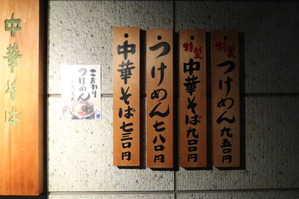 中華そば
こだわり
つけめん
中華そば 七三〇円
つけめん 七八〇円
特製
中華そば 九〇〇円
特製
つけめん 九五〇円